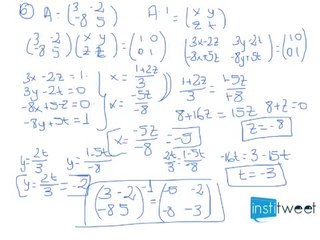 6 A = (3 -2 -8 5) A⁻¹ = (x y z t)
(3 -2 -8 5)(x y z t) = (1 0 0 1) (3x-2z 3y-2t -8x+5z -8y+5t) = (1 0 0 1)
3x - 2z = 1
3y - 2t = 0
-8x + 5z = 0
-8y + 5t = 1
x = 1+2z/3
x = -5z/-8
1+2z/3 = -5z/-8
8+16z = 15z 8+z=0
z = -8
x = -5z/-8 = -5
y = 2t/3 y = 1-5t/-8 2t/3 = 1-5t/-8 -16t = 3-15t
t = -3
y = 2t/3 = -2
(3 -2 -8 5)⁻¹ = (-5 -2 -8 -3)
institweet